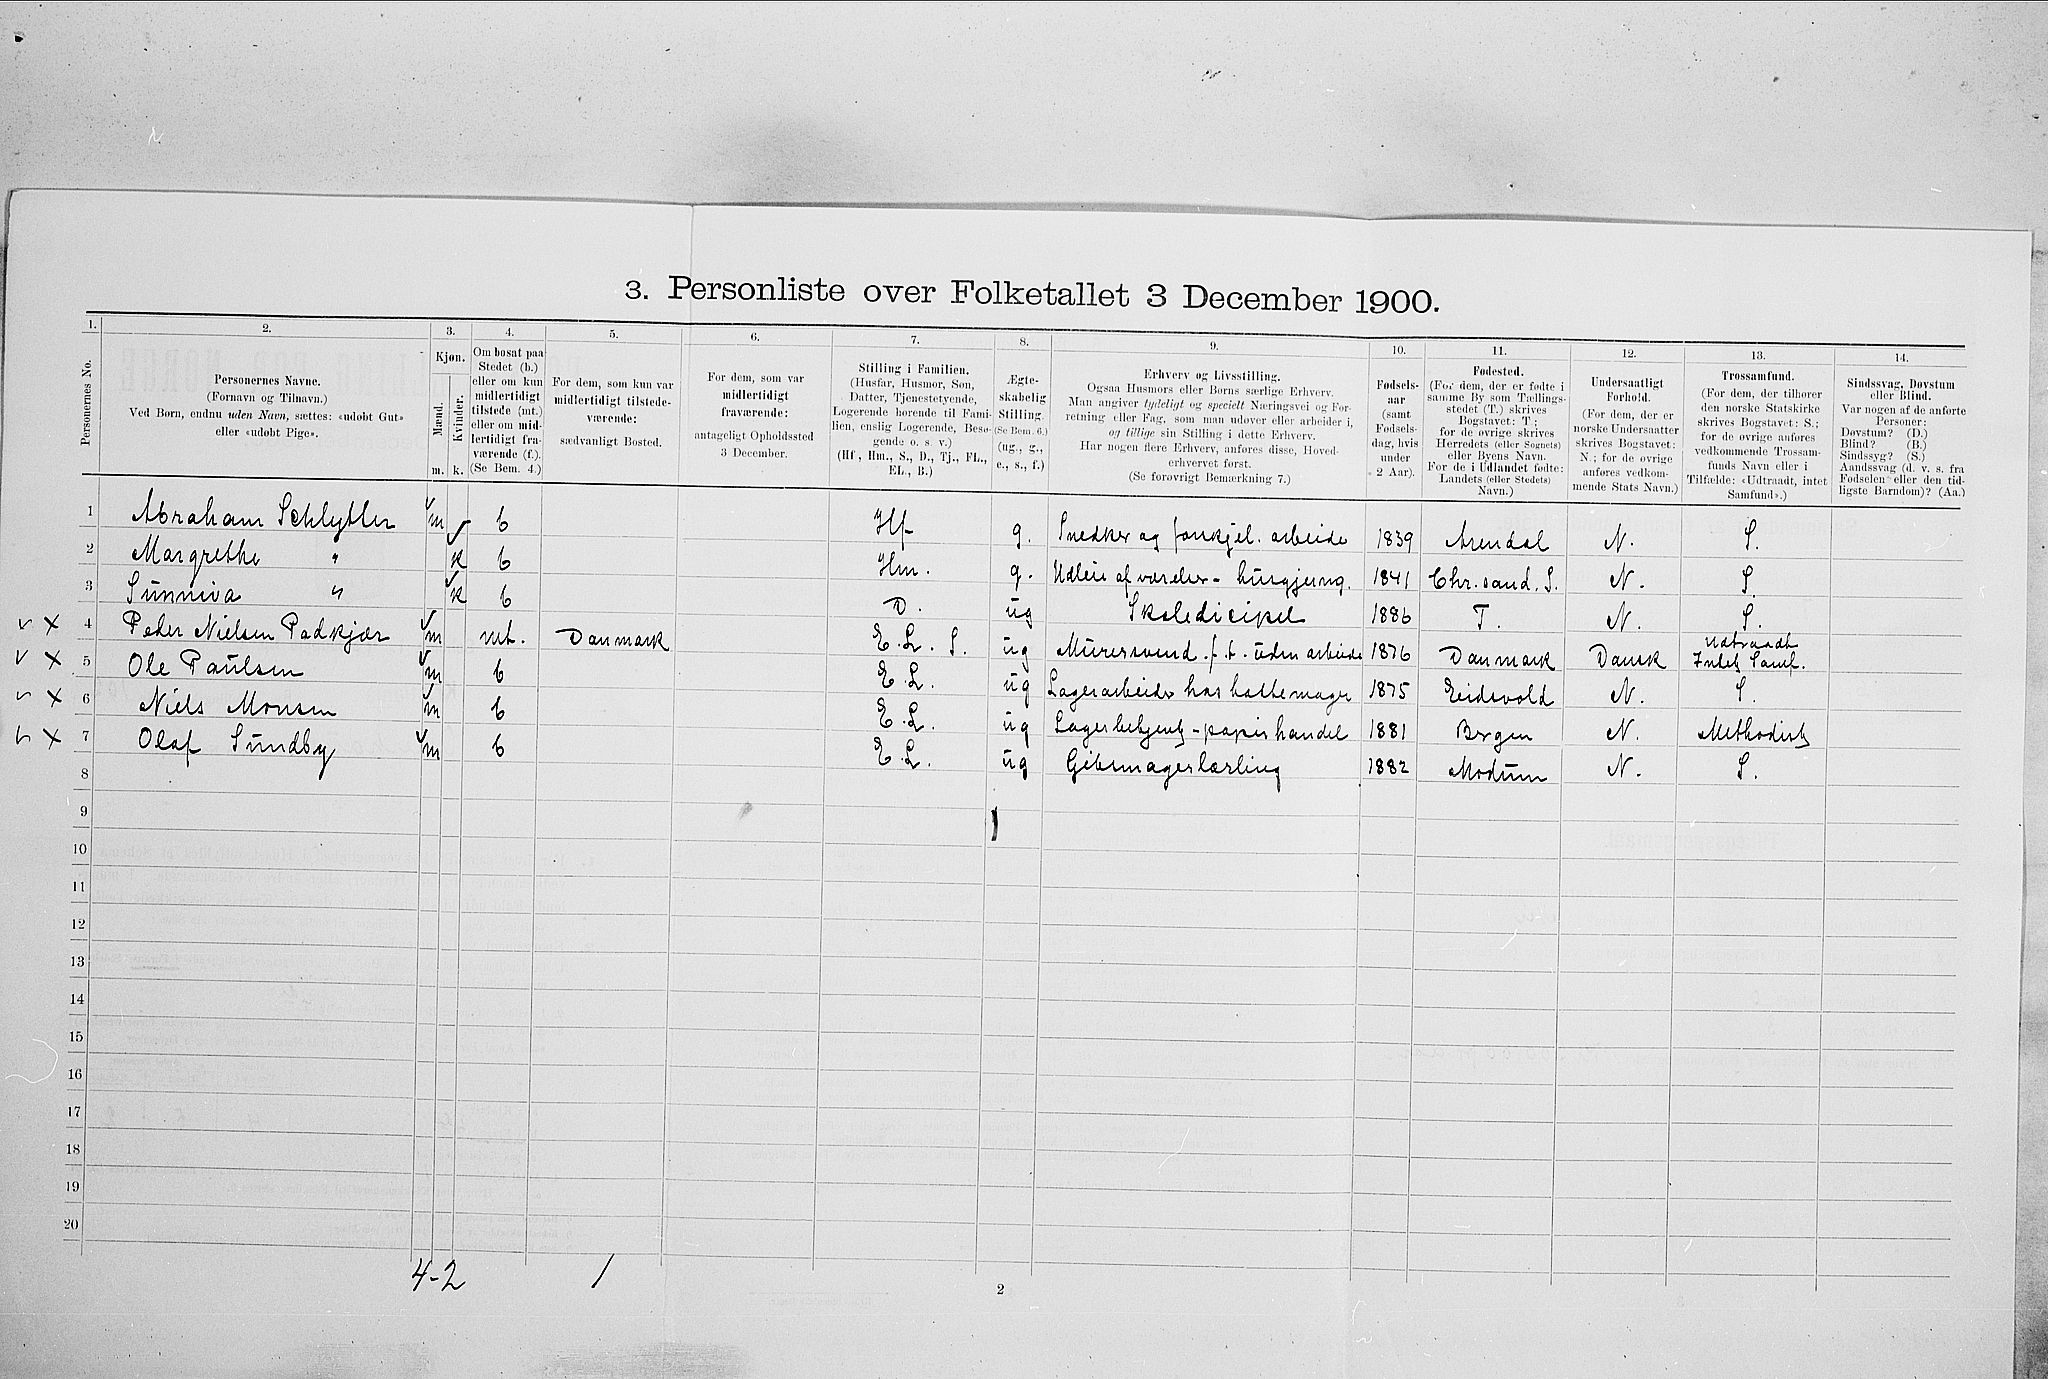 3. Personliste over Folketallet 3 December 1900.
1. 2. 3. 4. 5. 6. 7. 8. 9. 10. 11. 12. 13. 14.
Personernes No.
Personernes Navne.
(Fornavn og Tilnavn.)
Ved Børn, endnu uden Navn, sættes: «udøbt Gut»
eller «udøbt Pige».
Kjøn.
Mænd.
Kvinder.
m. k.
Om bosat paa
Stedet (b.)
eller om kun
midlertidigt
tilstede (mt.)
eller om mid-
lertidigt fra-
værende (f.).
(Se Bem. 4.)
For dem, som kun var
midlertidigt tilstede-
værende:
sædvanligt Bosted.
For dem, som var
midlertidigt
fraværende:
antageligt Opholdssted
3 December.
Stilling i Familien.
(Husfar, Husmor, Søn,
Datter, Tjenestetyende,
Logerende hørende til Fami-
lien, enslig Logerende, Besø-
gende o. s. v.)
(Hf, Hm., S., D., Tj., FL.,
EL., B.)
Ægte-
skabelig
Stilling.
(Se Bem. 6.)
(ug., g.,
e., s., f.)
Erhverv og Livsstilling.
Ogsaa Husmors eller Børns særlige Erhverv.
Man angiver tydeligt og specielt Næringsvei og For-
retning eller Fag, som man udøver eller arbeider i,
og tillige sin Stilling i dette Erhverv.
Har nogen flere Erhverv, anføres disse, Hoved-
erhvervet først.
(Se forøvrigt Bemærkning 7.)
Fødsels-
aar
(samt
Fødsels-
dag, hvis
under
2 Aar).
Fødested.
(For dem, der er fødte i
samme By som Tællings-
stedet (T.) skrives
Bogstavet: T;
for de øvrige skrives
Herredets (eller Sognets)
eller Byens Navn.
For de i Udlandet fødte:
Landets (eller Stedets)
Navn.)
Undersaatligt
Forhold.
(For dem, der er
norske Undersaatter
skrives Bogstavet:
N.; for de øvrige
anføres vedkom-
mende Stats Navn.)
Trossamfund.
(For dem, der tilhører
den norske Statskirke
skrives Bogstavet: S.;
for de øvrige anføres
vedkommende Trossam-
funds Navn eller i
Tilfælde: «Udtraadt, intet
Samfund».)
Sindssvag, Døvstum
eller Blind.
Var nogen af de anførte
Personer:
Døvstum? (D.)
Blind? (B.)
Sindssyg? (S.)
Aandssvag (d. v. s. fra
Fødselen eller den tid-
ligste Barndom)? (Aa.)
1 Abraham Schlytter m b Hf g. Snedker og forskjel. arbeide 1839 Arendal N. S.
2 Margrethe " k b Hm. g. Udleie af værelser - husgjerng. 1841 Chr.sand. S. N. S.
3 Sunniva " k b D. ug Skoledicipel 1886 T. N. S.
4 Peder Nielsen Padkjær m mt. Danmark E. L. S. ug Murersvend f.t. uden arbeide 1876 Danmark Dansk Udtraadt
Intet Samf.
5 Ole Paulsen m b E. L. ug Lagerarbeider hos hattemager 1875 Eidsvold N. S.
6 Niels Monsen m b E. L. ug Lagerbetjent - papirhandel 1881 Bergen N. Methodist
7 Olaf Sundby m b E. L. ug Gibsmagerlærling 1882 Modum N. S.
8
9
10
11
12
13
14
15
16
17
18
19
20
4-2 1
2